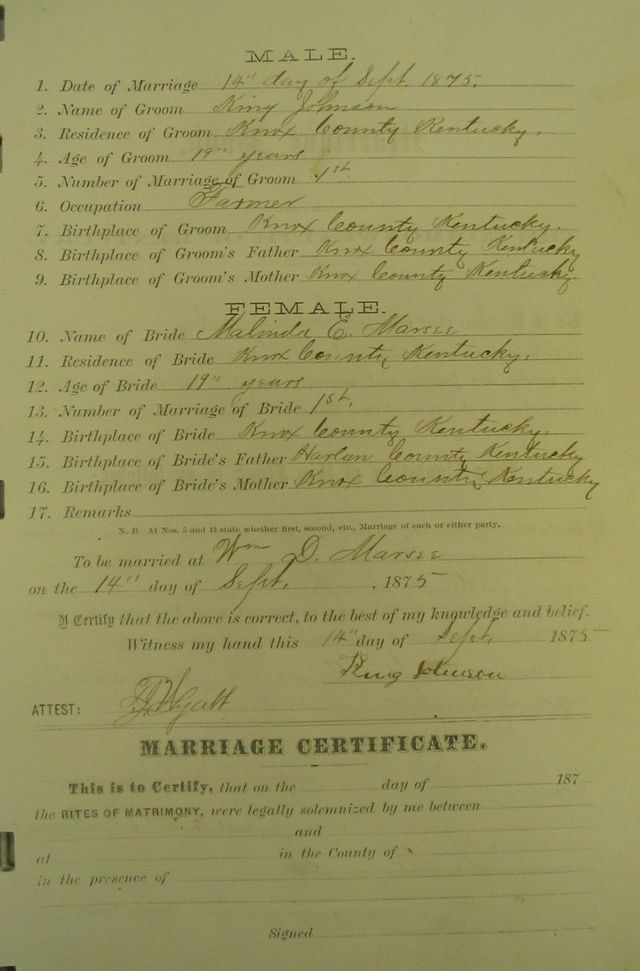 MALE.
1. Date of Marriage 14" day of Sept. 1875.
2. Name of Groom King Johnson
3. Residence of Groom Knox County Kentucky.
4. Age of Groom 19" years
5. Number of Marriage of Groom 1st.
6. Occupation Farmer
7. Birthplace of Groom Knox County Kentucky.
8. Birthplace of Groom's Father Knox County Kentucky
9. Birthplace of Groom's Mother Knox County Kentucky
FEMALE.
10. Name of Bride Malinda E. Marsee
11. Residence of Bride Knox County Kentucky.
12. Age of Bride 19" years
13. Number of Marriage of Bride 1st.
14. Birthplace of Bride Knox County Kentucky.
15. Birthplace of Bride's Father Harlan County Kentucky
16. Birthplace of Bride's Mother Knox County Kentucky
17. Remarks
N. B. At Nos. 5 and 13 state whether first, second, etc., Marriage of each or either party.
To be married at Wm D. Marsee
on the 14" day of Sept. , 1875
I Certify that the above is correct, to the best of my knowledge and belief.
Witness my hand this 14" day of Sept. 1875
King Johnson
ATTEST: Wyatt
MARRIAGE CERTIFICATE.
This is to Certify, that on the day of 187
the RITES OF MATRIMONY, were legally solemnized by me between
and
at in the County of
in the presence of
Signed